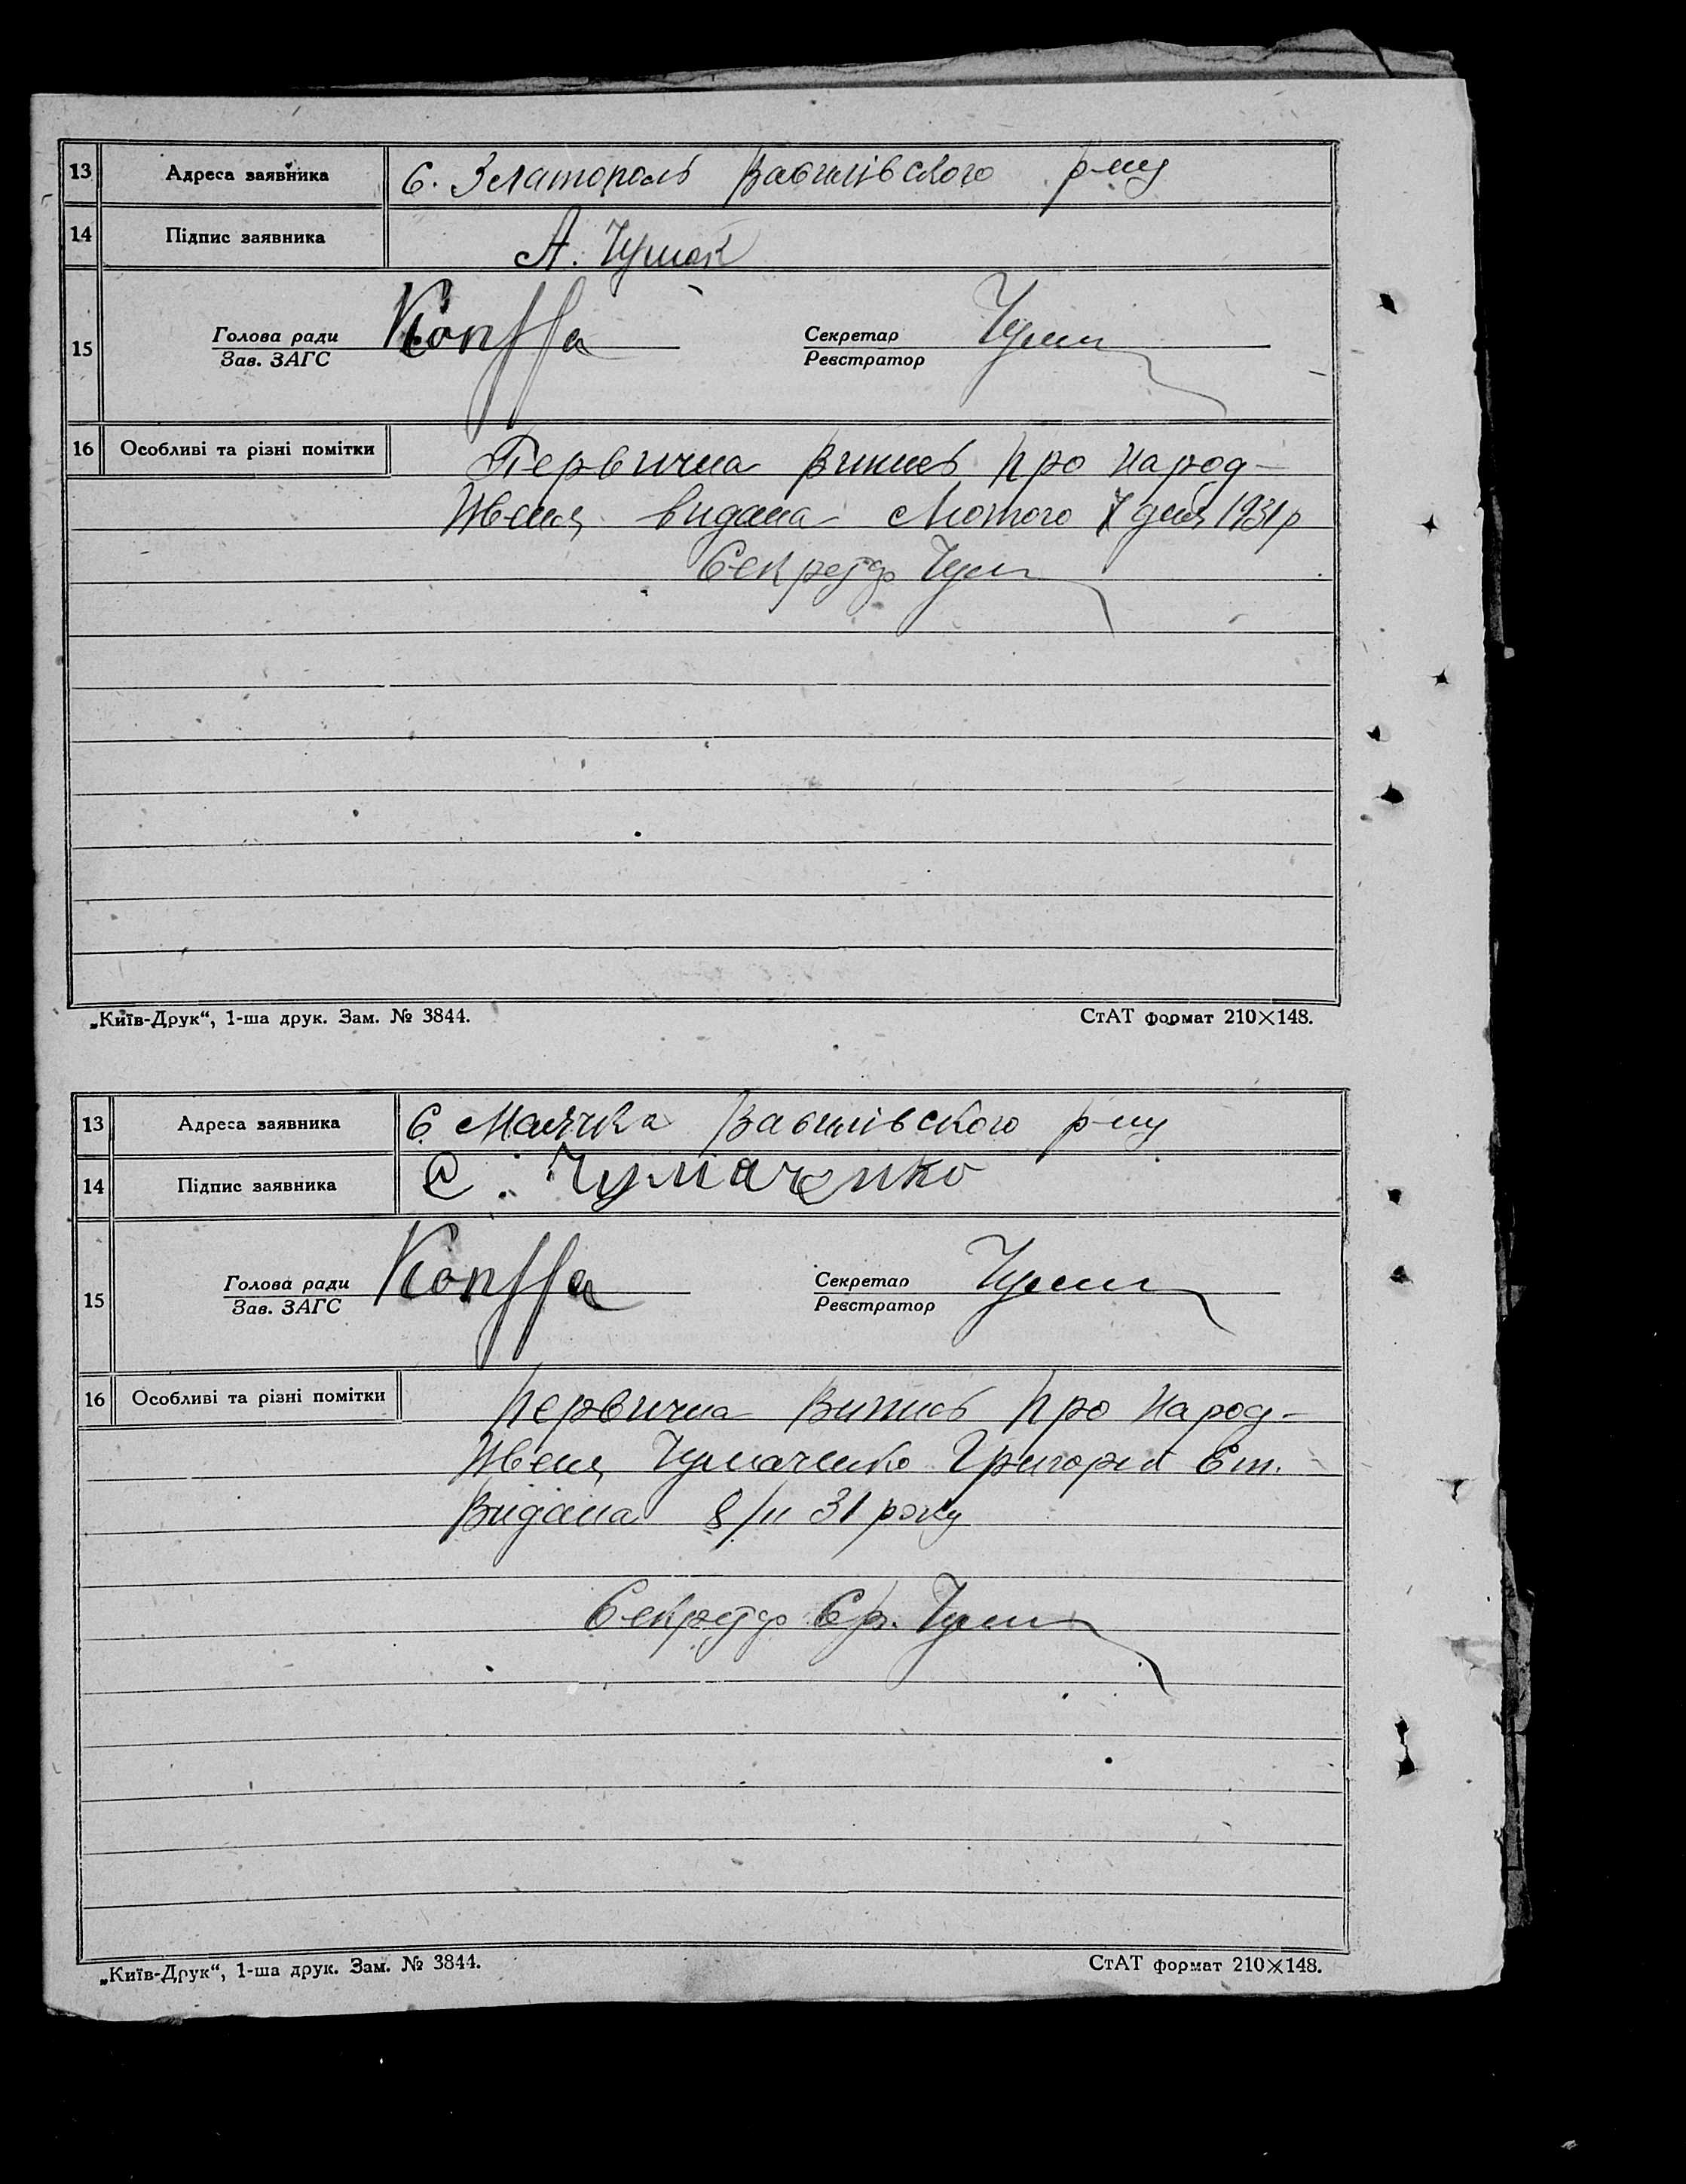 13 Адреса заявника С. Златополь Василівского р-ну
14 Підпис заявника А. Чумак
15 Голова ради Секретар
Зав. ЗАГС Реєстратор
16 Особливі та різні помітки Первична випись про народ-
женя видана Лютого 7 дня 1931 р
Секретар
„Київ-Друк“, 1-ша друк. Зам. № 3844. СтАТ формат 210×148.
13 Адреса заявника С Маячка Василівского р-ну
14 Підпис заявника Є. Чумаченко
15 Голова ради Секретар
Зав. ЗАГС Реєстратор
16 Особливі та різні помітки Первична випись про народ-
женя Чумаченко Григорія
Видана 8/II 31 року
Секретар
„Київ-Друк“, 1-ша друк. Зам. № 3844. СтАТ формат 210×148.